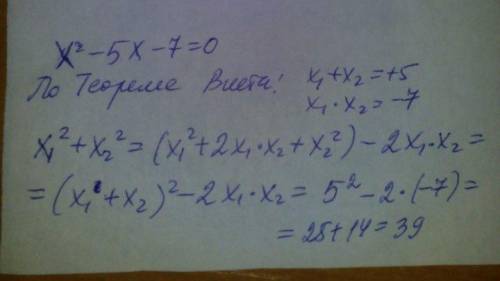 x² - 5x - 7 = 0
По Теореме Виета: x₁ + x₂ = +5
x₁ · x₂ = -7
x₁² + x₂² = (x₁² + 2x₁·x₂ + x₂²) - 2x₁·x₂ =
= (x₁ + x₂)² - 2x₁·x₂ = 5² - 2·(-7) =
= 25 + 14 = 39